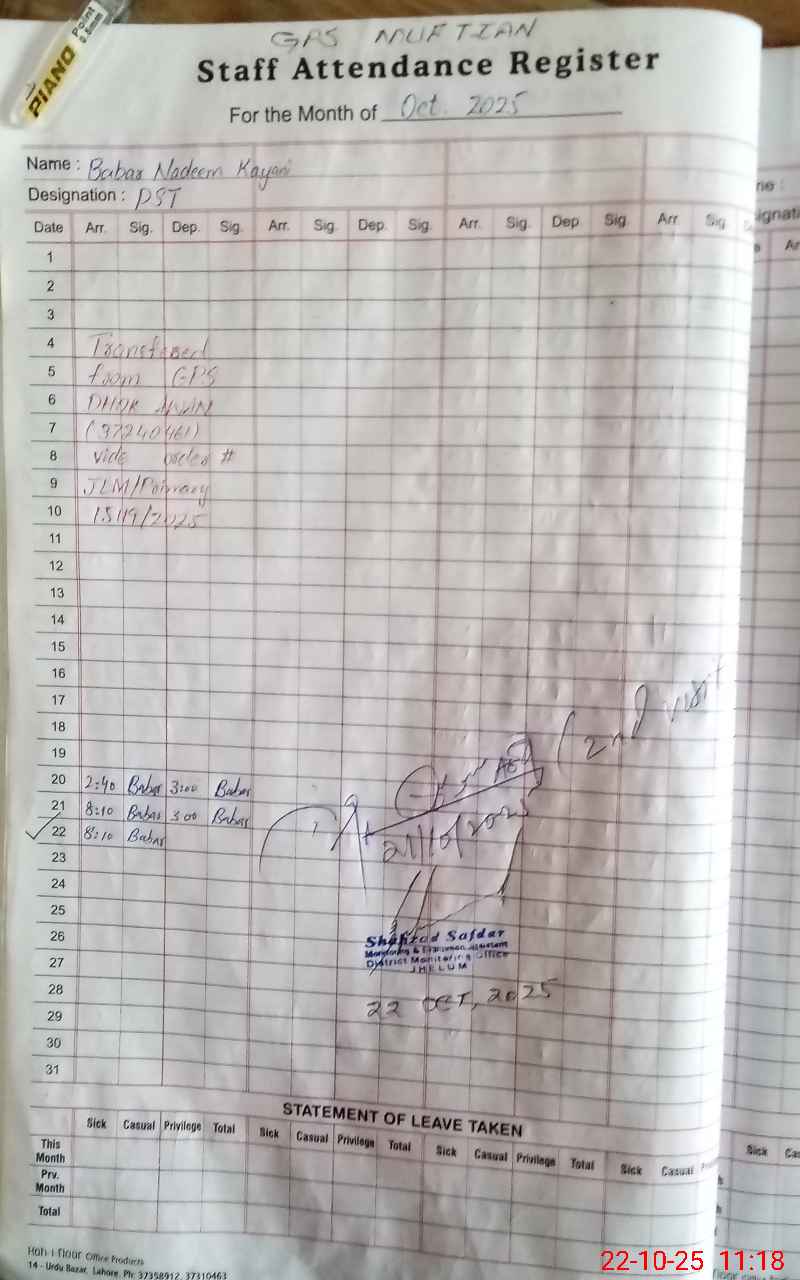 PIANO Point 0.8mm
GPS MUFTIAN
Staff Attendance Register
For the Month of Oct. 2025
Name : Babar Nadeem Kayani
Designation : PST
Date Arr. Sig. Dep. Sig. Arr. Sig. Dep. Sig. Arr. Sig. Dep Sig. Arr Sig
1
2
3
4 Transfered
5 from GPS
6 DHOK AWAN
7 (37240461)
8 vide order #
9 JLM/Primary
10 1519/2025
11
12
13
14
15
16
17
18
19
(2nd visit
20 2:40 Babar 3:00 Babar
21 8:10 Babar 3:00 Babar
22 8:10 Babar
21/10/2025
23
24
25
26
Shahzad Safdar
Monitoring & Evaluation Assistant
27
District Monitoring Office
JHELUM
28
22 OCT, 2025
29
30
31
STATEMENT OF LEAVE TAKEN
Sick Casual Privilege Total Sick Casual Privilege Total Sick Casual Privilege Total Sick Casual
This Month
Prv. Month
Total
Office Products
14 - Urdu Bazar, Lahore. Ph: 37358912, 37310463
22-10-25 11:18